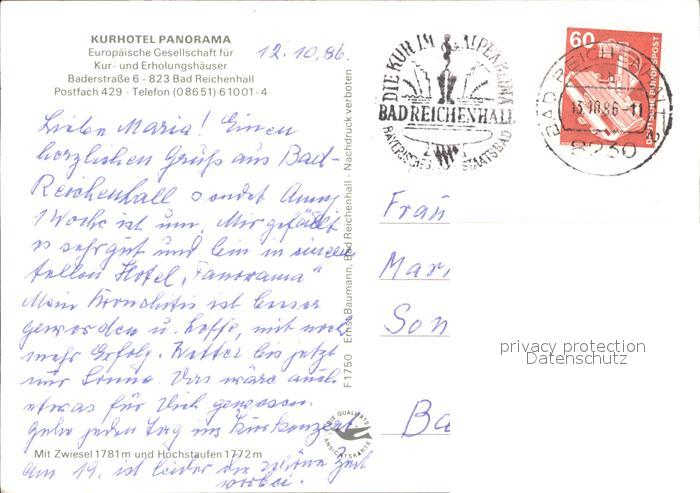 KURHOTEL PANORAMA
Europäische Gesellschaft für
Kur- und Erholungshäuser
Baderstraße 6 - 823 Bad Reichenhall
Postfach 429 - Telefon (08651) 61001-4
12.10.86.
Lieben Maria! Einen
herzlichen Gruß aus Bad-
Reichenhall sendet Anny
1 Woche ist um. Mir gefällt
es sehr gut und bin in einem
tollen Hotel „Panorama"
Mein Bronchitis ist besser
geworden u. hoffe, mit noch
mehr Erfolg. Wetter bis jetzt
nur Sonne. Das wäre auch
etwas für Dich gewesen.
Gehe jeden Tag ins Kurkonzert
Mit Zwiesel 1781 m und Hochstaufen 1772 m
Am 19. ist leider die schöne Zeit
vorbei.
F 1750 Ernst Baumann, Bad Reichenhall - Nachdruck verboten
DIE QUALITÄTS
ANSICHTSKARTE
DIE KUR IM ALPENKLIMA
BAD REICHENHALL
BAYERISCHES STAATSBAD
60
DEUTSCHE BUNDESPOST
BAD REICHENHALL
13.10.86-11
8230
Frau
Mar
Son
Ba
privacy protection
Datenschutz